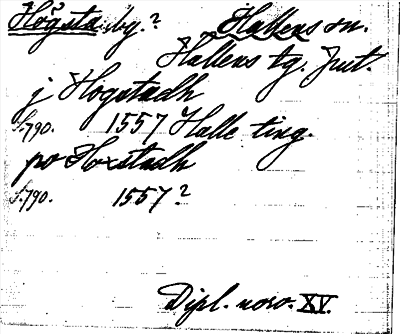 Högsta by.? Hallens sn.
Hallens tg. Jmt.
j Hogstadh
S. 790. 1557 Halle ting.
po Hoxstadh
S. 790. 1557?
Dipl. norv. XV.